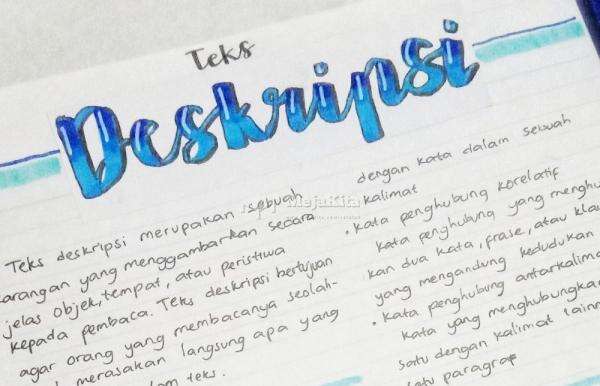 Teks
Deskripsi
Teks deskripsi merupakan sebuah
karangan yang menggambarkan secara
jelas objek, tempat, atau peristiwa
kepada pembaca. Teks deskripsi bertujuan
agar orang yang membacanya seolah-
merasakan langsung apa yang
teks.
dengan kata dalam sebuah
kalimat
• Kata penghubung korelatif
kata penghubung yang menghu
kan dua kata, frase, atau klau
yang mengandung kedudukan
• Kata penghubung antarkalima
kata yang menghubungka
satu dengan kalimat lainn
satu paragraf
MejaKita